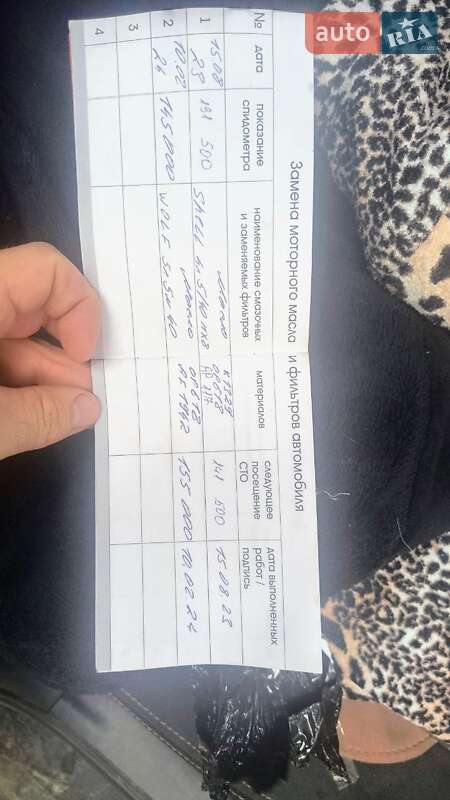 auto RIA.com
Замена моторного масла и фильтров автомобиля
№ дата показание спидометра наименование смазочных и заменяемых фильтров материалов следующее посещение СТО дата выполненных работ / подпись
1 15.08 23 131 500 масло SHELL 141 500 15.08.23
2 10.02 24 145000 масло 155000 10.02.24
3
4